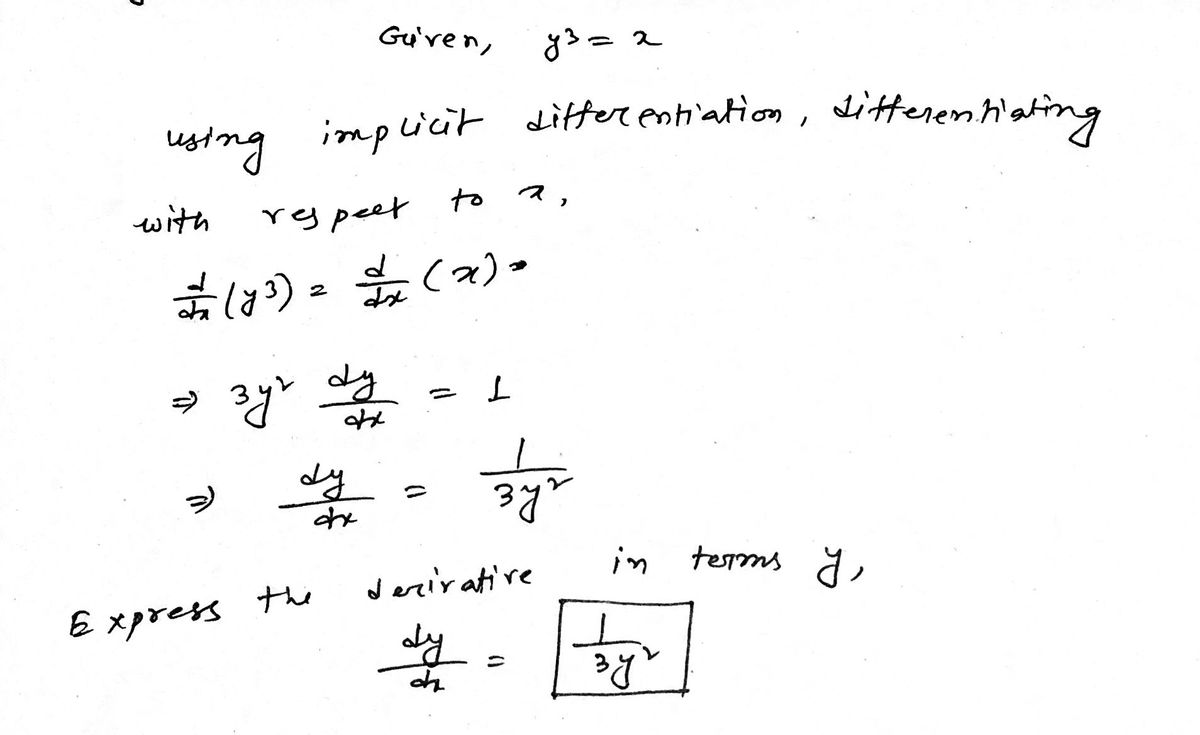 Given, y³ = x
using implicit differentiation, differentiating
with respect to x,
d/dx (y³) = d/dx (x)
⇒ 3y² dy/dx = 1
⇒ dy/dx = 1/3y²
Express the derivative in terms y,
dy/dx = 1/3y²